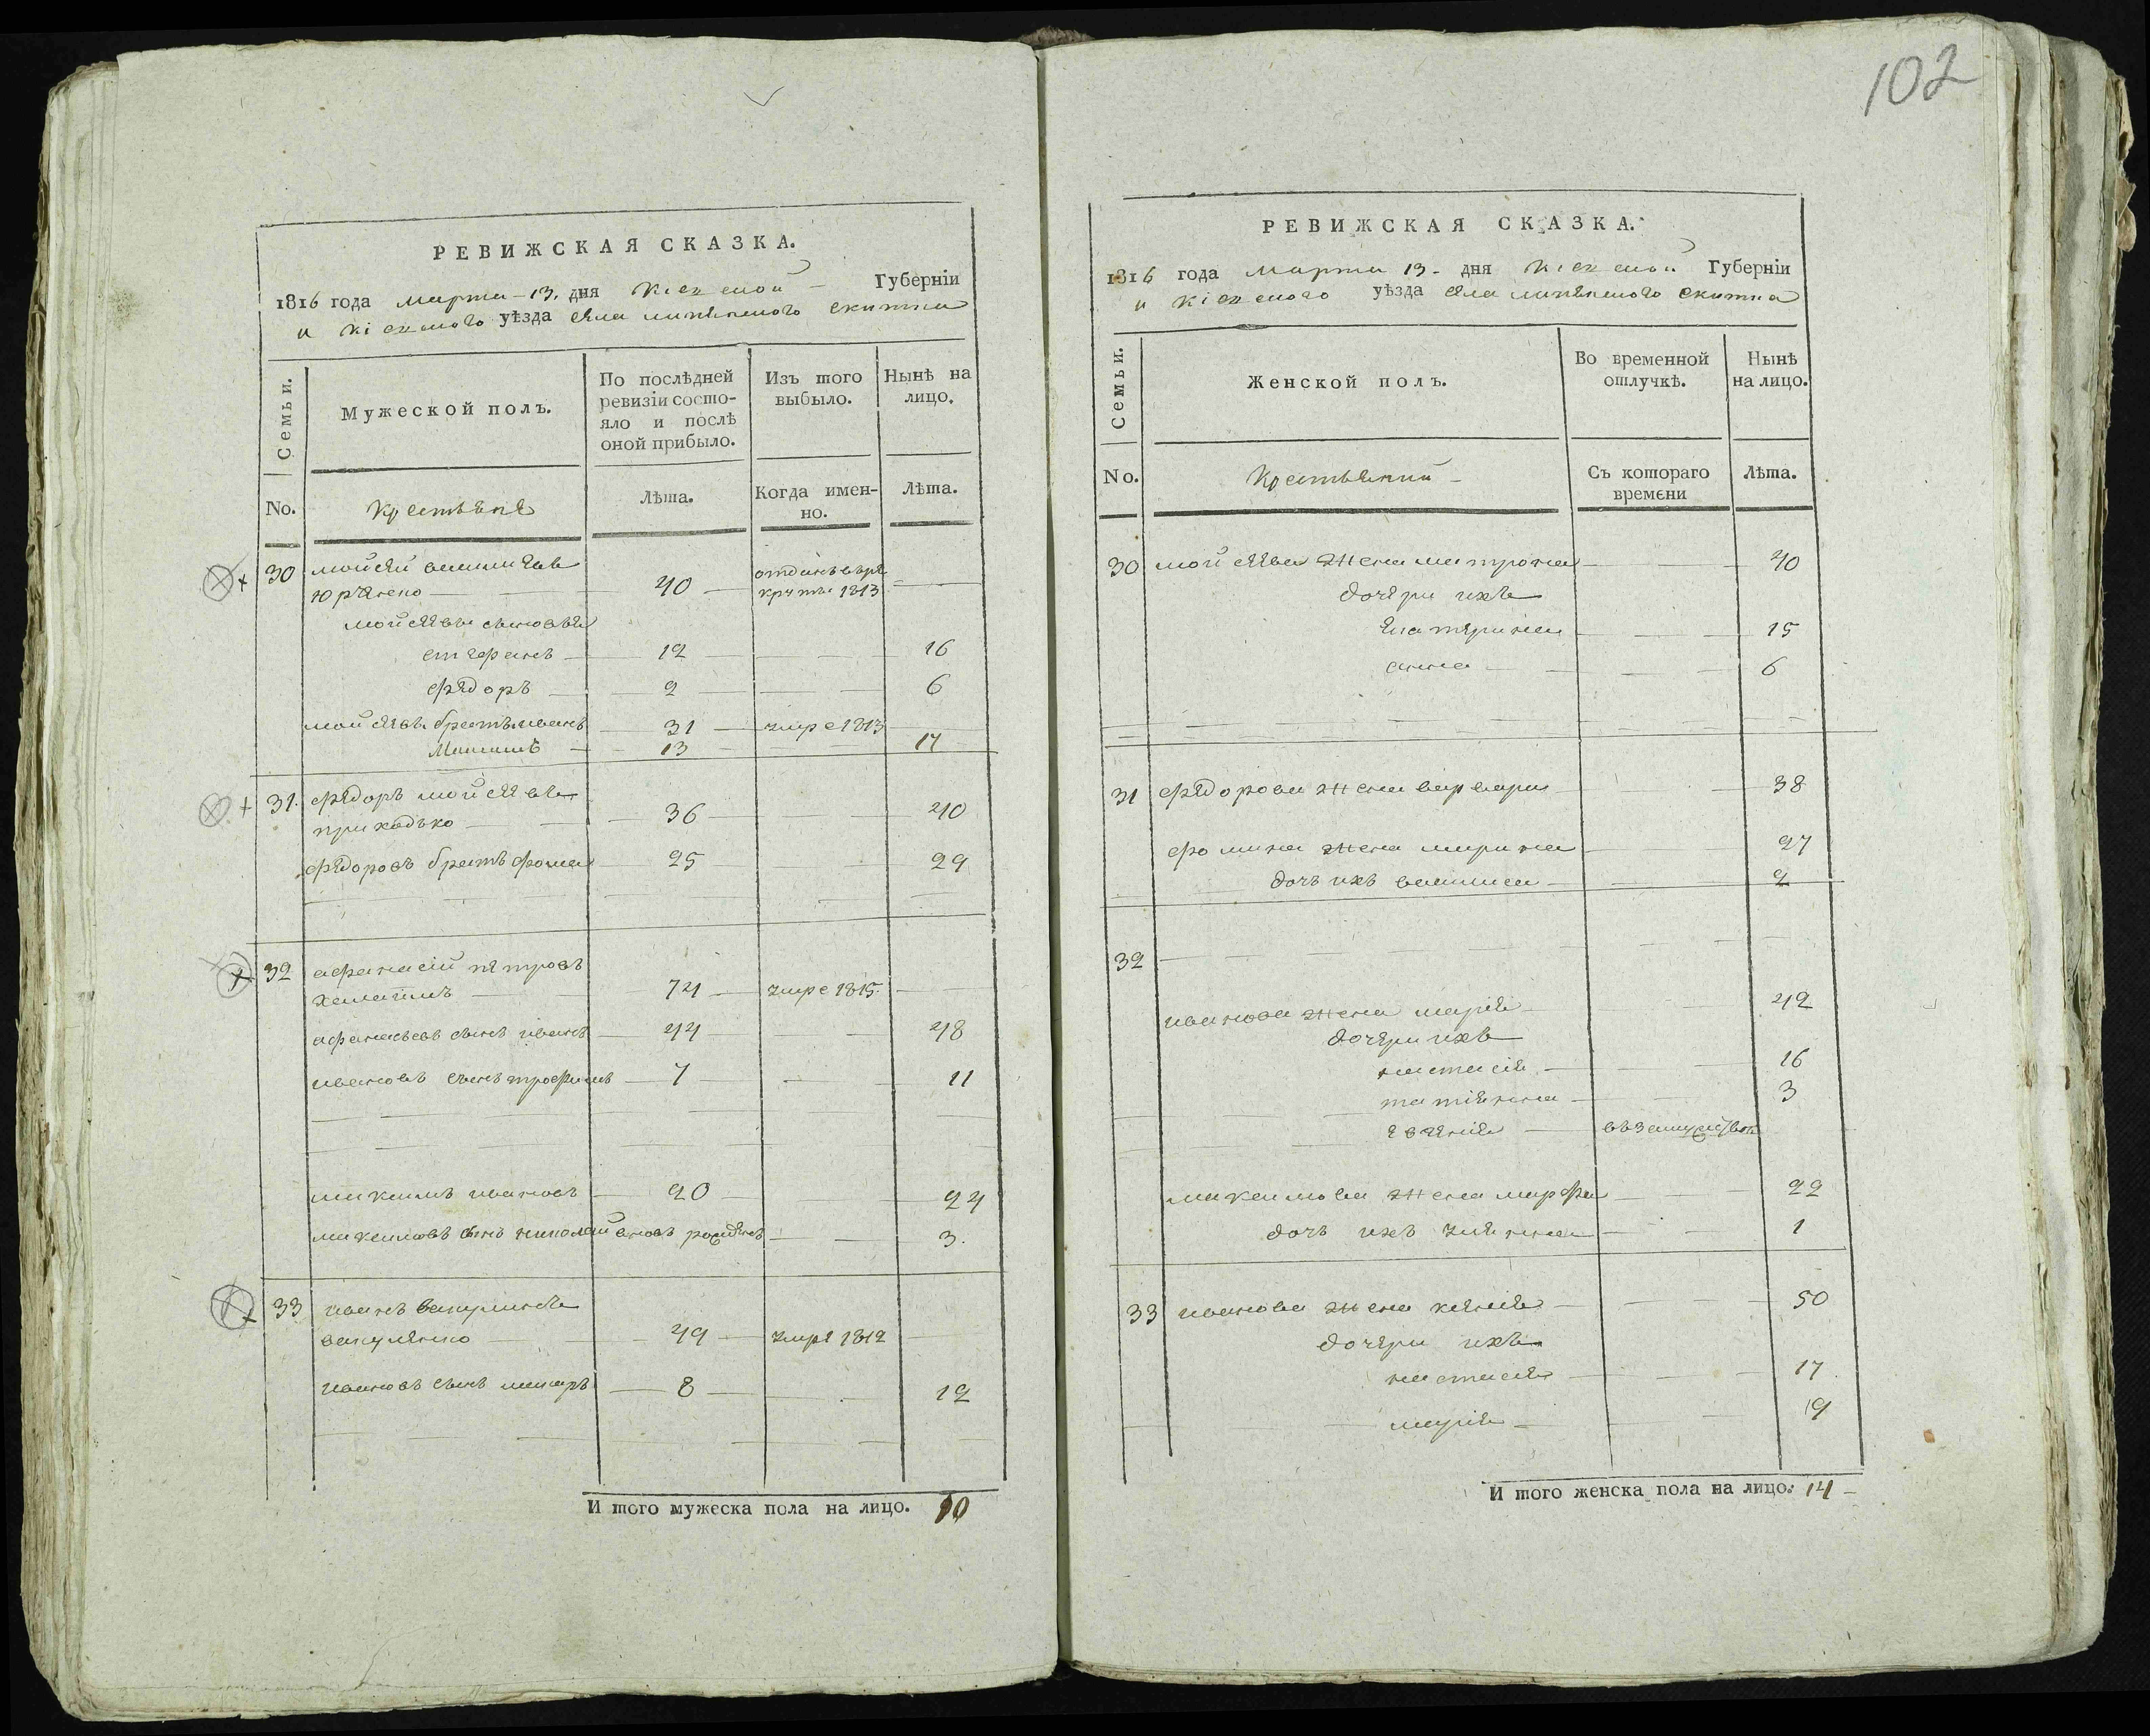 102
РЕВИЖСКАЯ СКАЗКА.
1816 года марта 13. дня Кіевской Губерніи
и Кіевского уѣзда села скитка
Семьи.
Мужеской полъ.
По послѣдней ревизіи состояло и послѣ оной прибыло.
Изъ того выбыло.
Нынѣ на лицо.
No.
Крестьяне
Лѣта.
Когда именно.
Лѣта.
30 мойсей
юрченко 40 отданъ в ре
круты 1813
мойсеевы сыновья
стефанъ 12 16
федоръ 2 6
мойсеевъ братъ иванъ 31 умре 1813
13 17
31. федоръ мойсеевъ
приходько 36 40
федоровъ братъ фома 25 29
32 афанасій петровъ
74 умре 1815.
афанасьевъ сынъ иванъ 44 48
ивановъ сынъ трофимъ 7 11
максимъ ивановъ 20 24
максимовъ сынъ николай вновь рожденъ 3.
33 иванъ
вакуленко 49 умре 1812
ивановъ сынъ макаръ 8 12
И того мужеска пола на лицо. 10
РЕВИЖСКАЯ СКАЗКА.
1816 года марта 13. дня Кіевской Губерніи
и Кіевского уѣзда села скитка
Семьи.
Женской полъ.
Во временной отлучкѣ.
Нынѣ на лицо.
No.
Крестьянки
Съ котораго времени
Лѣта.
30 мойсеева жена матрона 40
дочери ихъ
екатерина 15
анна 6
31 федорова жена варвара 38
фомина жена марина 27
дочь ихъ василиса 2
32
иванова жена марія 42
дочери ихъ
настасія 16
татіянна 3
евгенія въ замужстве
максимова жена марфа 22
дочь ихъ уліянна 1
33 иванова жена ксенія 50
дочери ихъ
настасія 17
марія 19
И того женска пола на лицо. 14